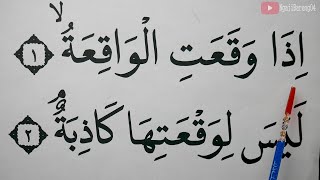 اِذَا وَقَعَتِ الْوَاقِعَةُ ۙ ١
لَيْسَ لِوَقْعَتِهَا كَاذِبَةٌ ۘ ٢